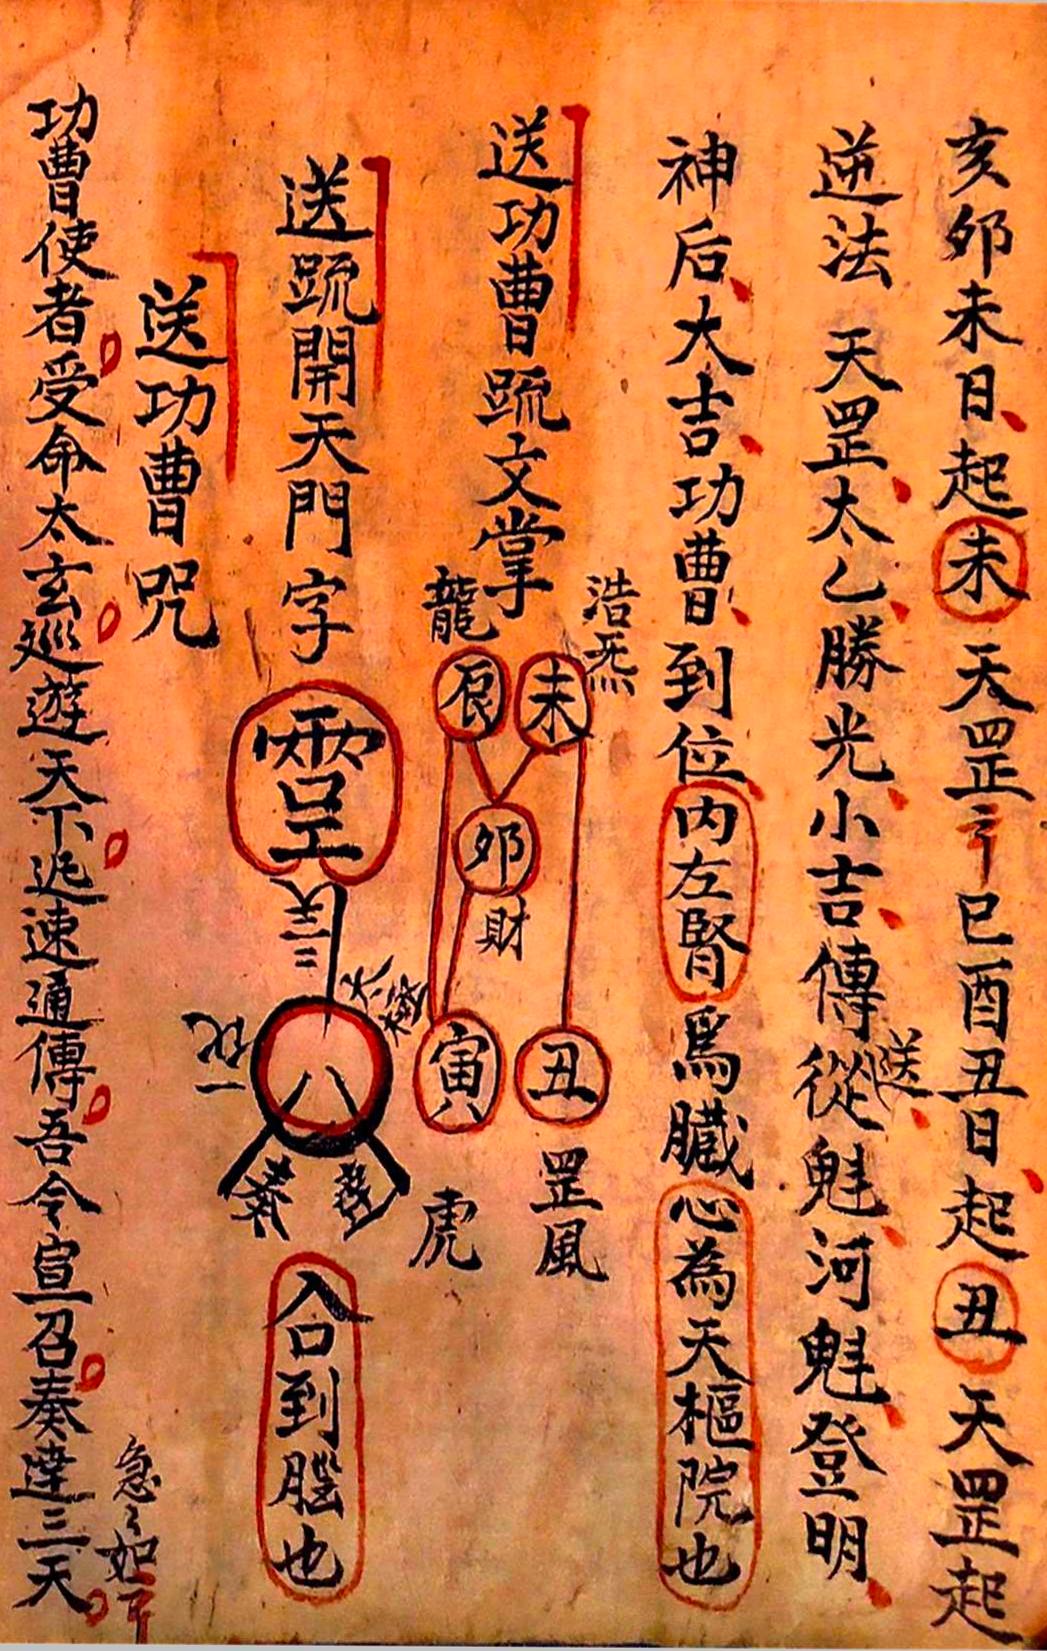 亥卯未日起未天罡〻巳酉丑日起丑天罡起
逆法 天罡太乙勝光小吉傳送從魁河魁登明
神后大吉功曹到位内左腎爲臟心為天樞院也
浩炁
送功曹䟽文掌
龍
辰 未
卯
財
寅 丑
虎
罡風
送䟽開天門字
入口到腦也
送功曹咒
功曹使者受命太玄巡遊天下迅速通傳吾令宣召奏達三天
急〻如